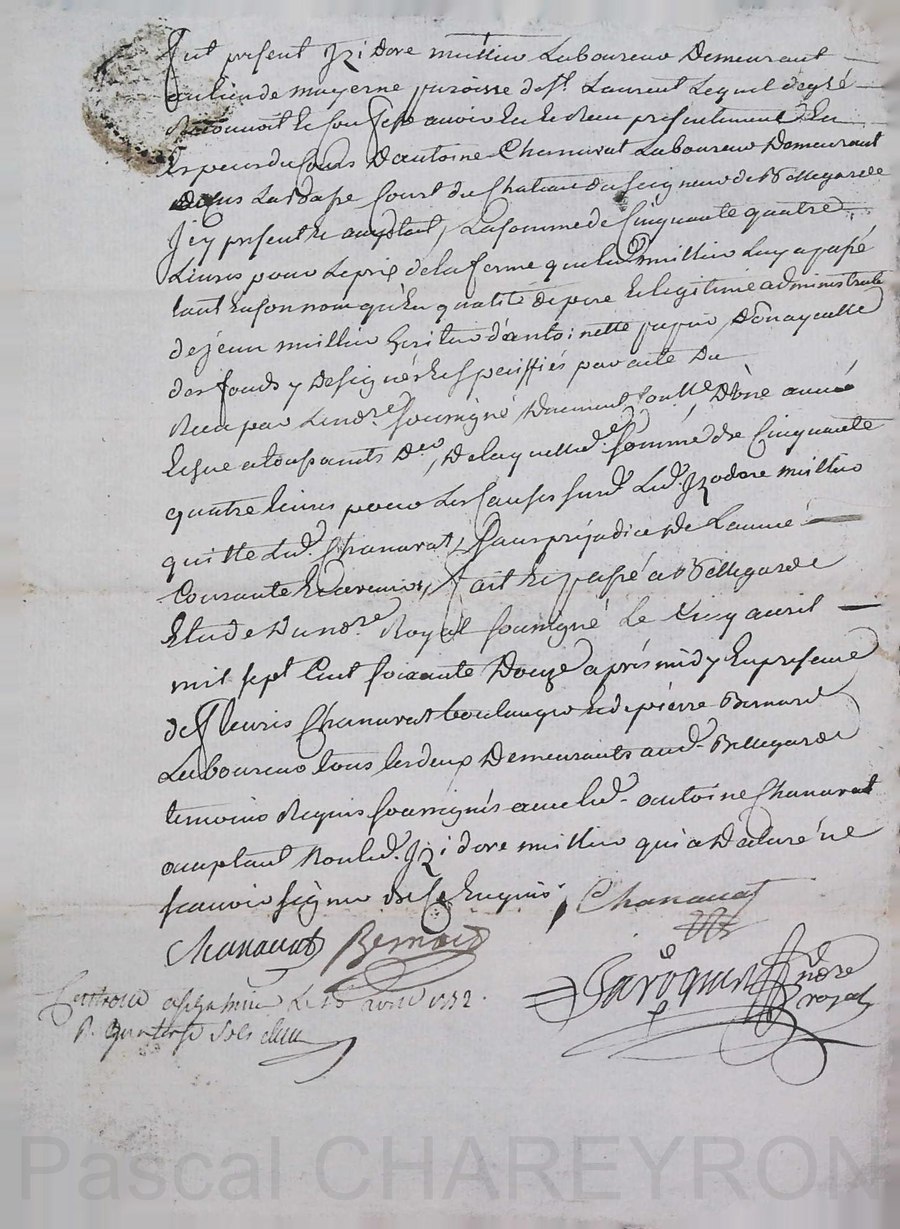 fut present Izidore mullieu Laboureur Demeurant
au lieu de mayerne paroisse de st. Laurent Lequel de gré
Reconnoit Et Confesse avoir Eu Et Receu presentement En
Especes du Cours D'antoine Chanavat Laboureur Demeurant
dans La Basse Court du Chateau du Seigneur de Bellegarde
Jcy present Et acceptant, La somme de Cinquante quatre
Livres pour Le prix de la ferme que led. mullieu Luy a passé
tant En son nom qu'En qualité de pere Et legitime administrateur
de jean mullieu heritier d'antoinette papin,
des fonds y Designés Et speciffiés par acte du
Receu par Le ndre. soussigné Duement Conllé D'une année
Echue a toussaints Der, De laquelle de. somme de Cinquante
quatre livres pour Les Causes susd. Led. Izidore mullieu
quitte Led. Chanavat, Sans préjudice de L'année
Courante Et avenir, fait Et passé a Bellegarde
Etude Du ndre Royal soussigné Le Cinq avril
mil sept Cent soixante Douze après midy En presence
de fleuris Chanavat boulanger Et de pierre Bernard
Laboureur tous les deux Demeurants aud. Bellegarde
temoins Requis soussignés avec led. antoine Chanavat
acceptant Non led. Izidore mullieu qui a Declaré ne
scavoir signer de Ce Enquis. Chanavat
Chanavat Bernard
Controllé a le 15 avril 1772.
R. quatorze sols
ndre
royal
Pascal CHAREYRON